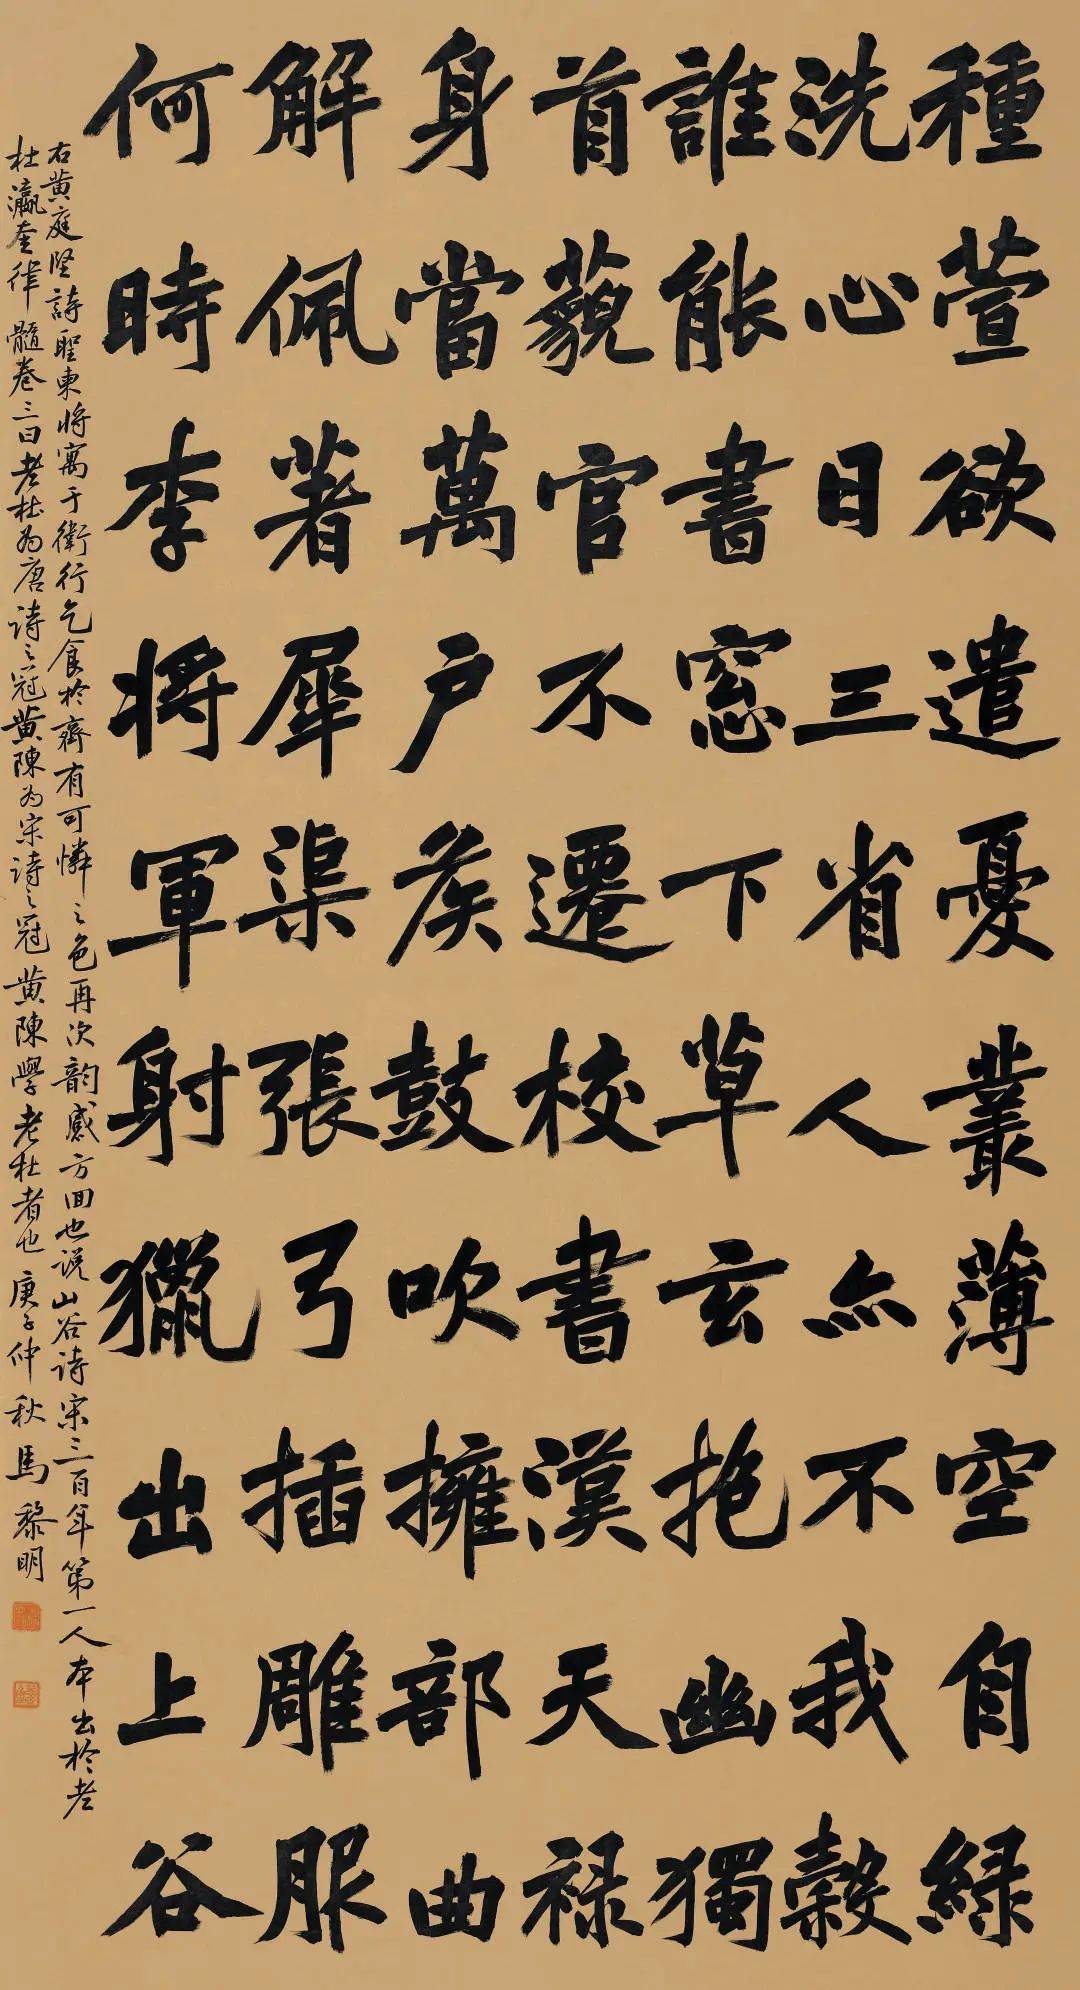 種萱欲遣憂叢薄空自綠
洗心日三省人亦不我穀
誰能書窓下草玄抱幽獨
首藐官不遷校書漢天禄
身當萬户侯鼓吹擁部曲
解佩著犀渠張弓插雕服
何時李將軍射獵出上谷
右黄庭坚詩聖東将寓于衛行乞食於齊有可憐之色再次韵感方回也说山谷诗宋三百年第一人本出於老
杜瀛奎律髓卷三曰老杜为唐诗之冠黄陳为宋诗之冠黄陳學老杜者也庚子仲秋馬黎明